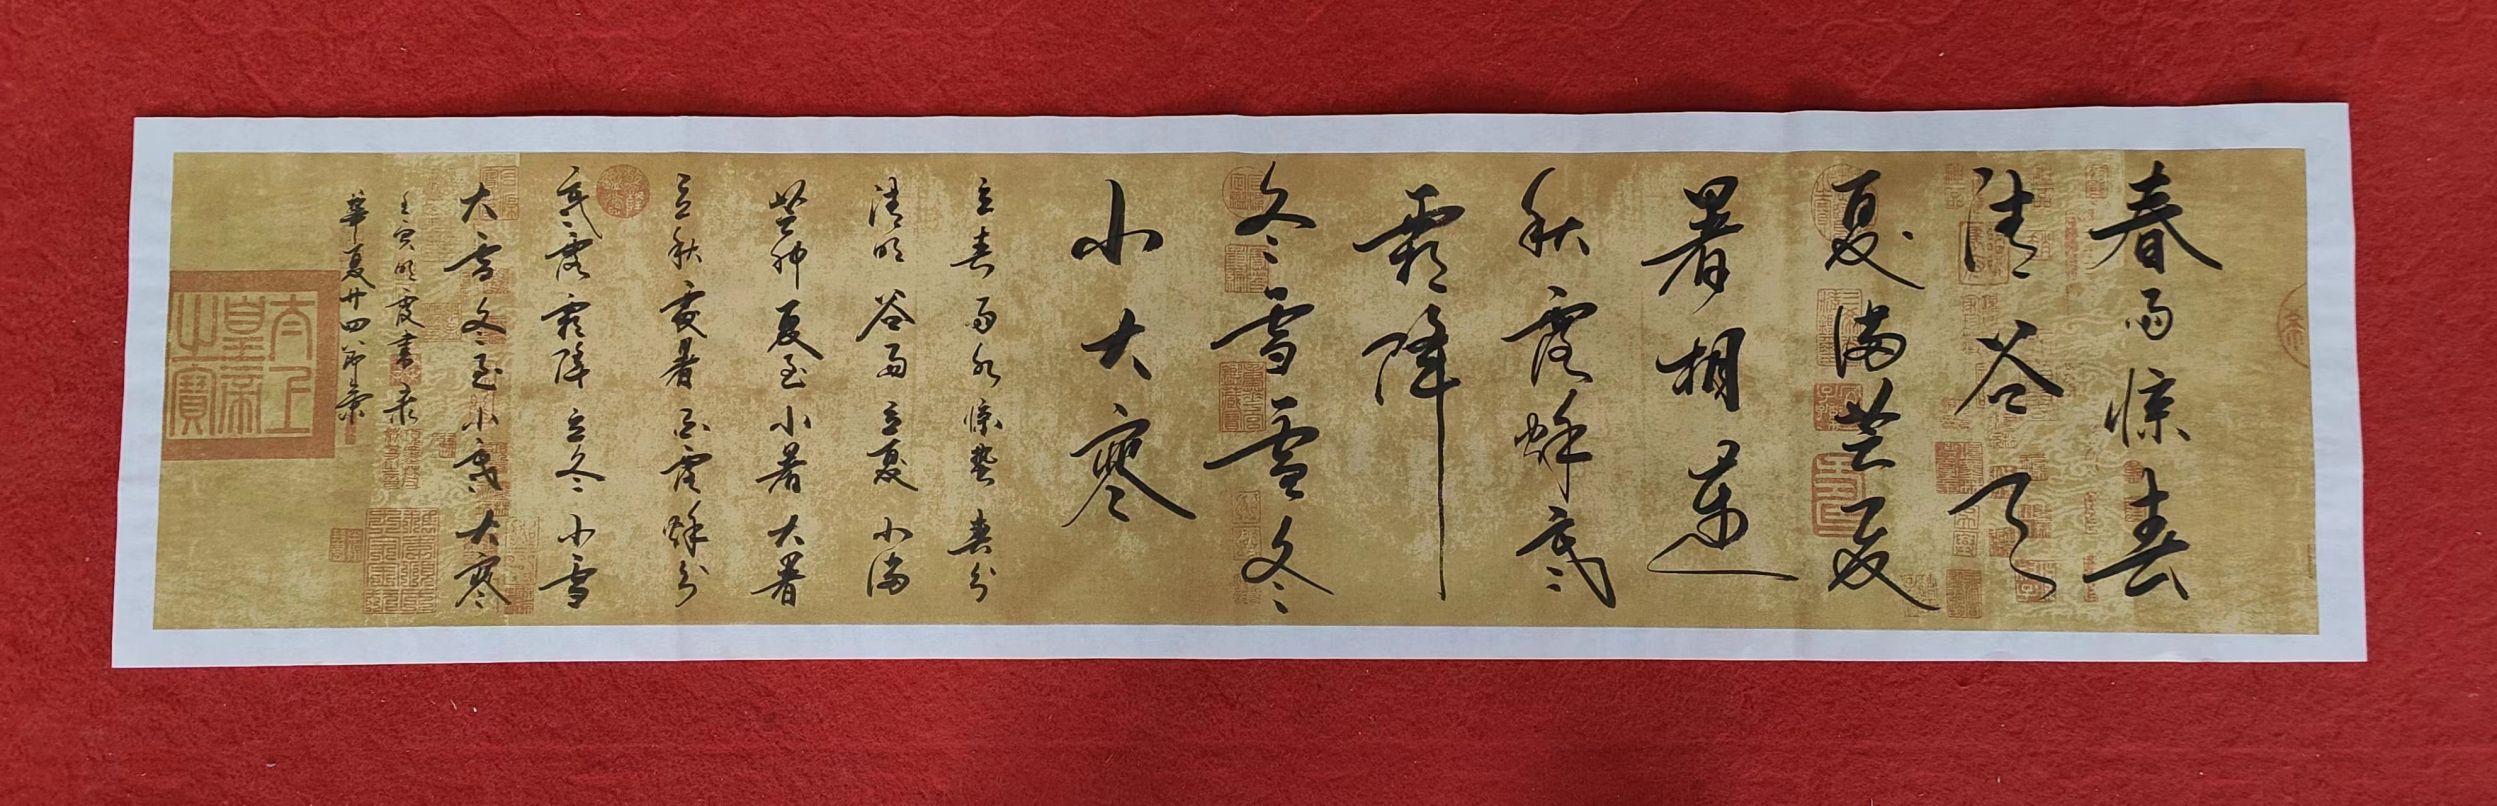 春雨惊春
清谷天
夏满芒夏
暑相连
秋露秋寒
霜降
冬雪雪冬
小大寒
立春雨水惊蛰春分
清明谷雨立夏小满
芒种夏至小暑大暑
立秋处暑白露秋分
寒露霜降立冬小雪
大雪冬至小寒大寒
壬寅明霞书录
華夏廿四節
太上皇帝之寶